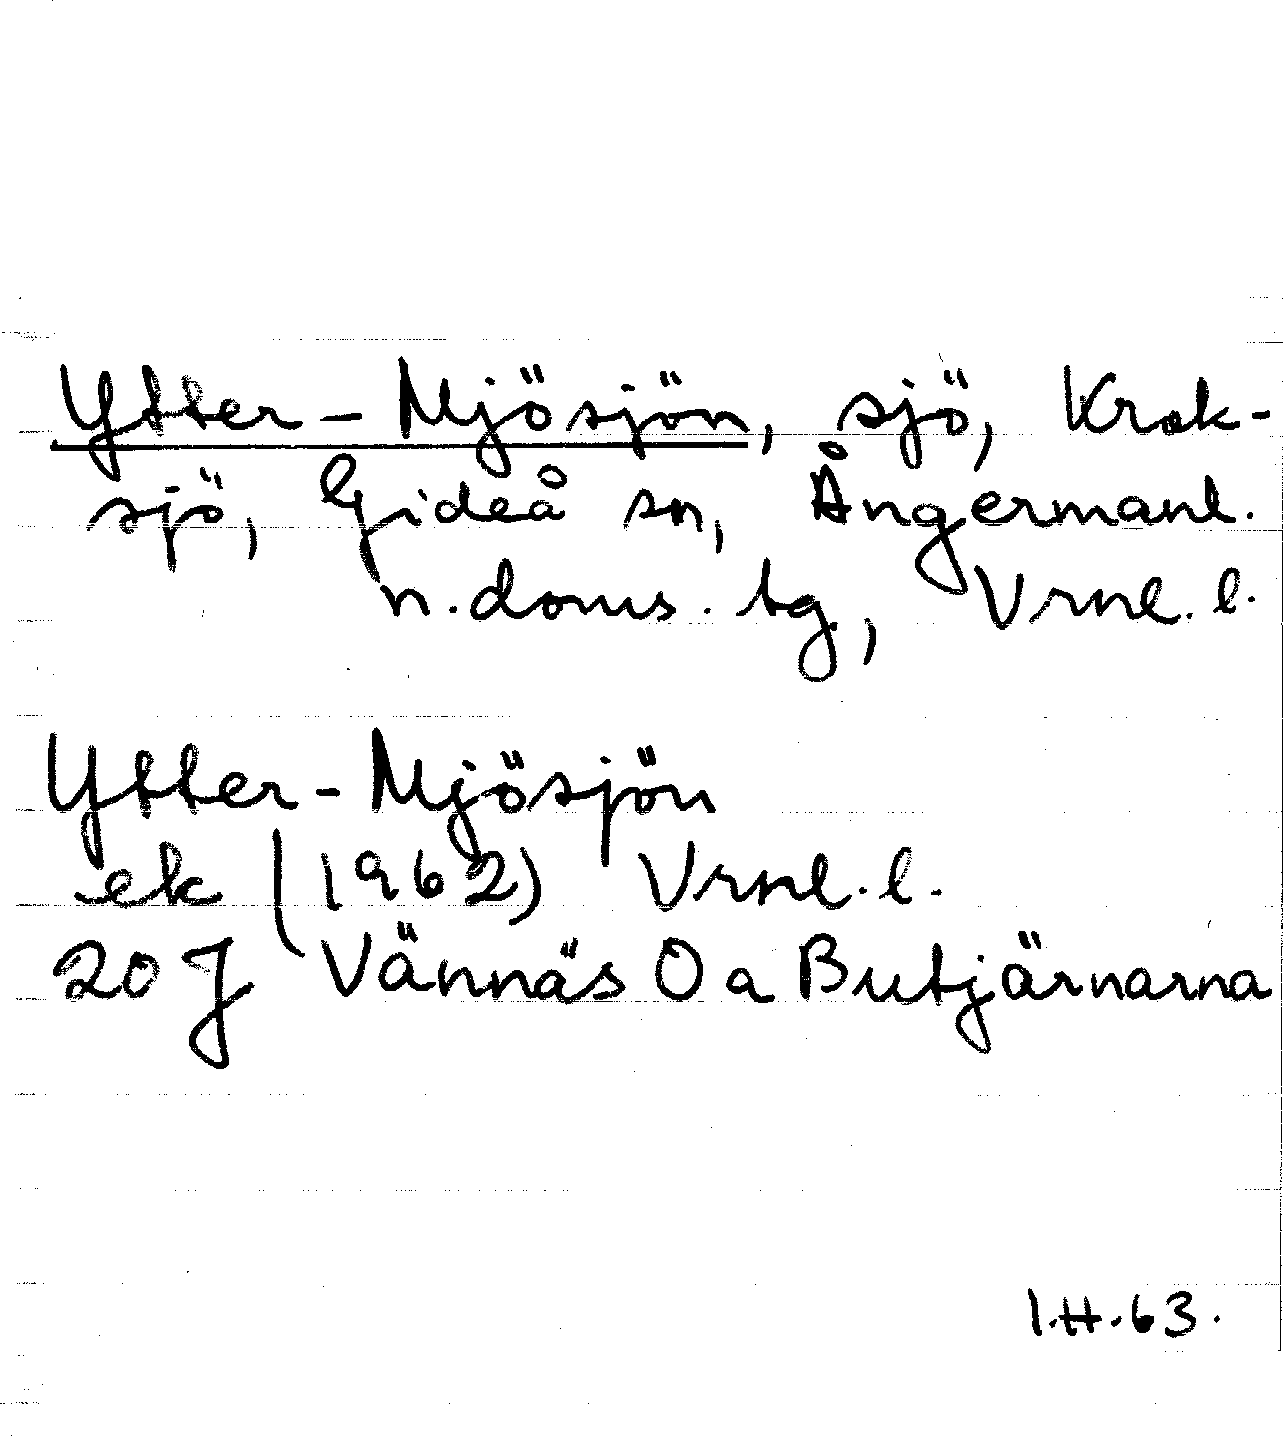 Ytter-Mjösjön, sjö, Krok-
sjö, Gideå sn, Ångermanl.
n. doms. tg, Vrnl. l.
Ytter-Mjösjön
ek (1962) Vrnl. l.
20 J Vännäs O a Butjärnarna
I.H.63.